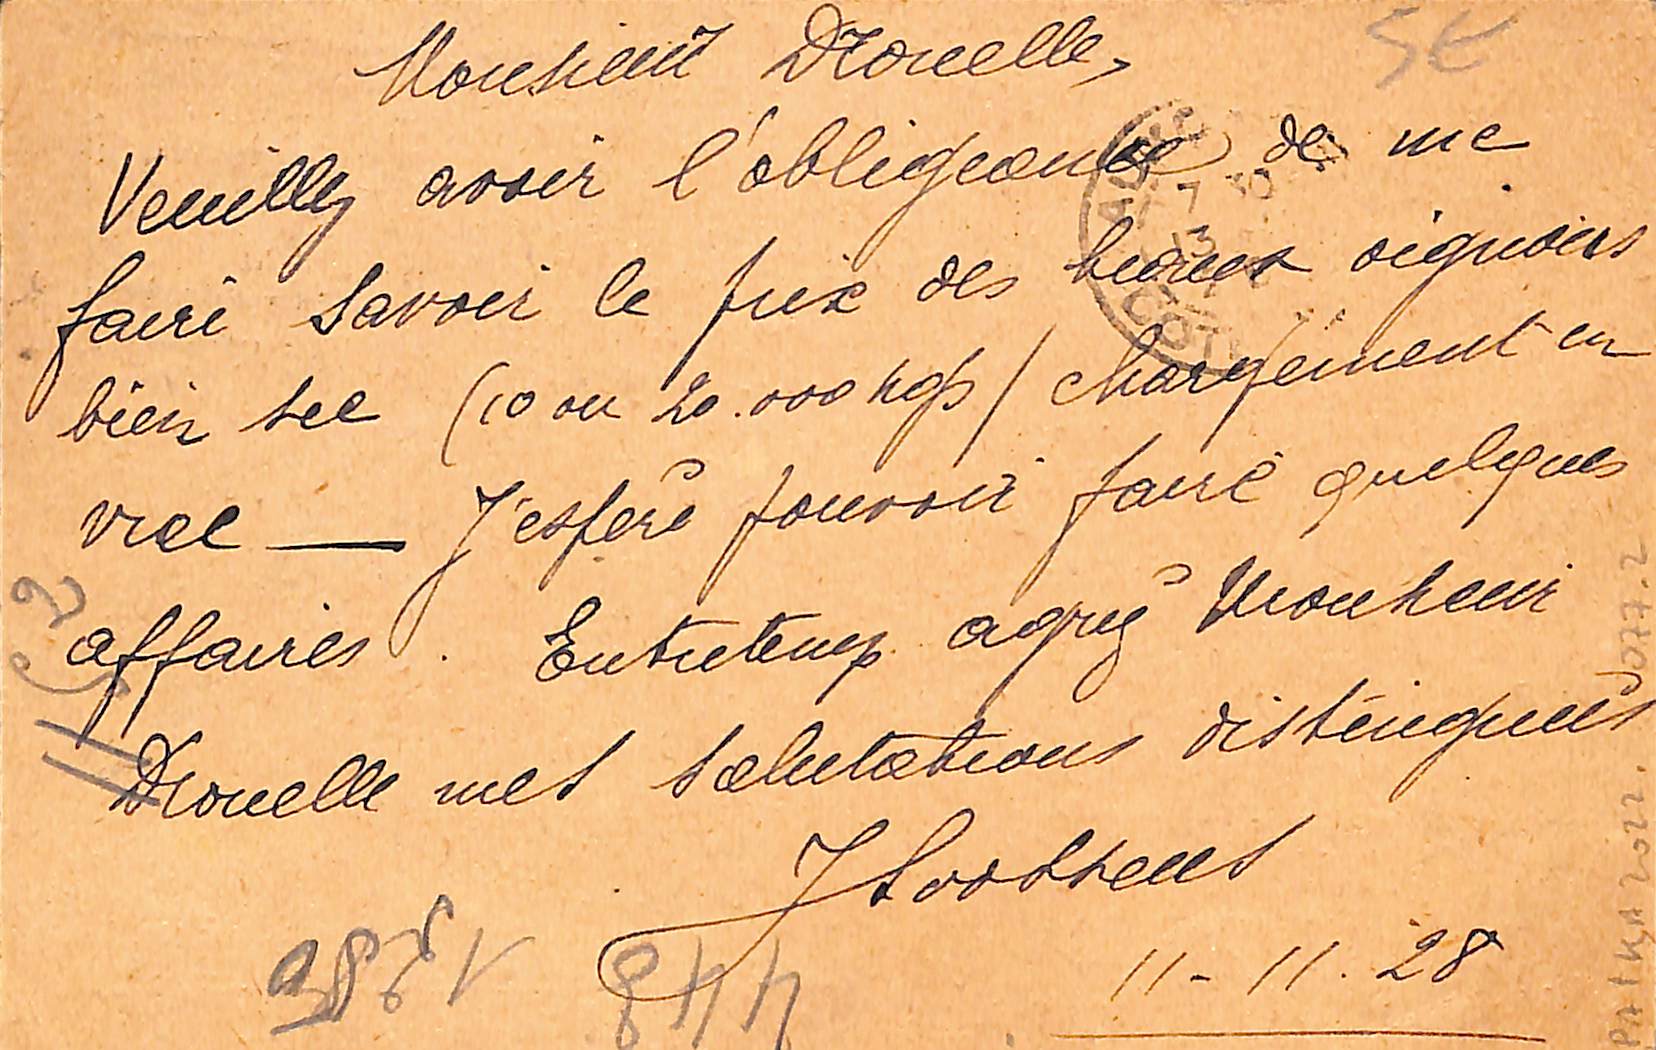 Monsieur Drouelle,
Veuillez avoir l'obligeance de me
faire savoir le prix des beaux oignons
bien sec (10 ou 20.000 kgs) chargement en
vrac — J'espère pouvoir faire quelques
affaires. Entretemps agréz Monsieur
Drouelle mes salutations distinguées
J Goossens
11-11.28
5€
448
PA1KA2022.J077.2